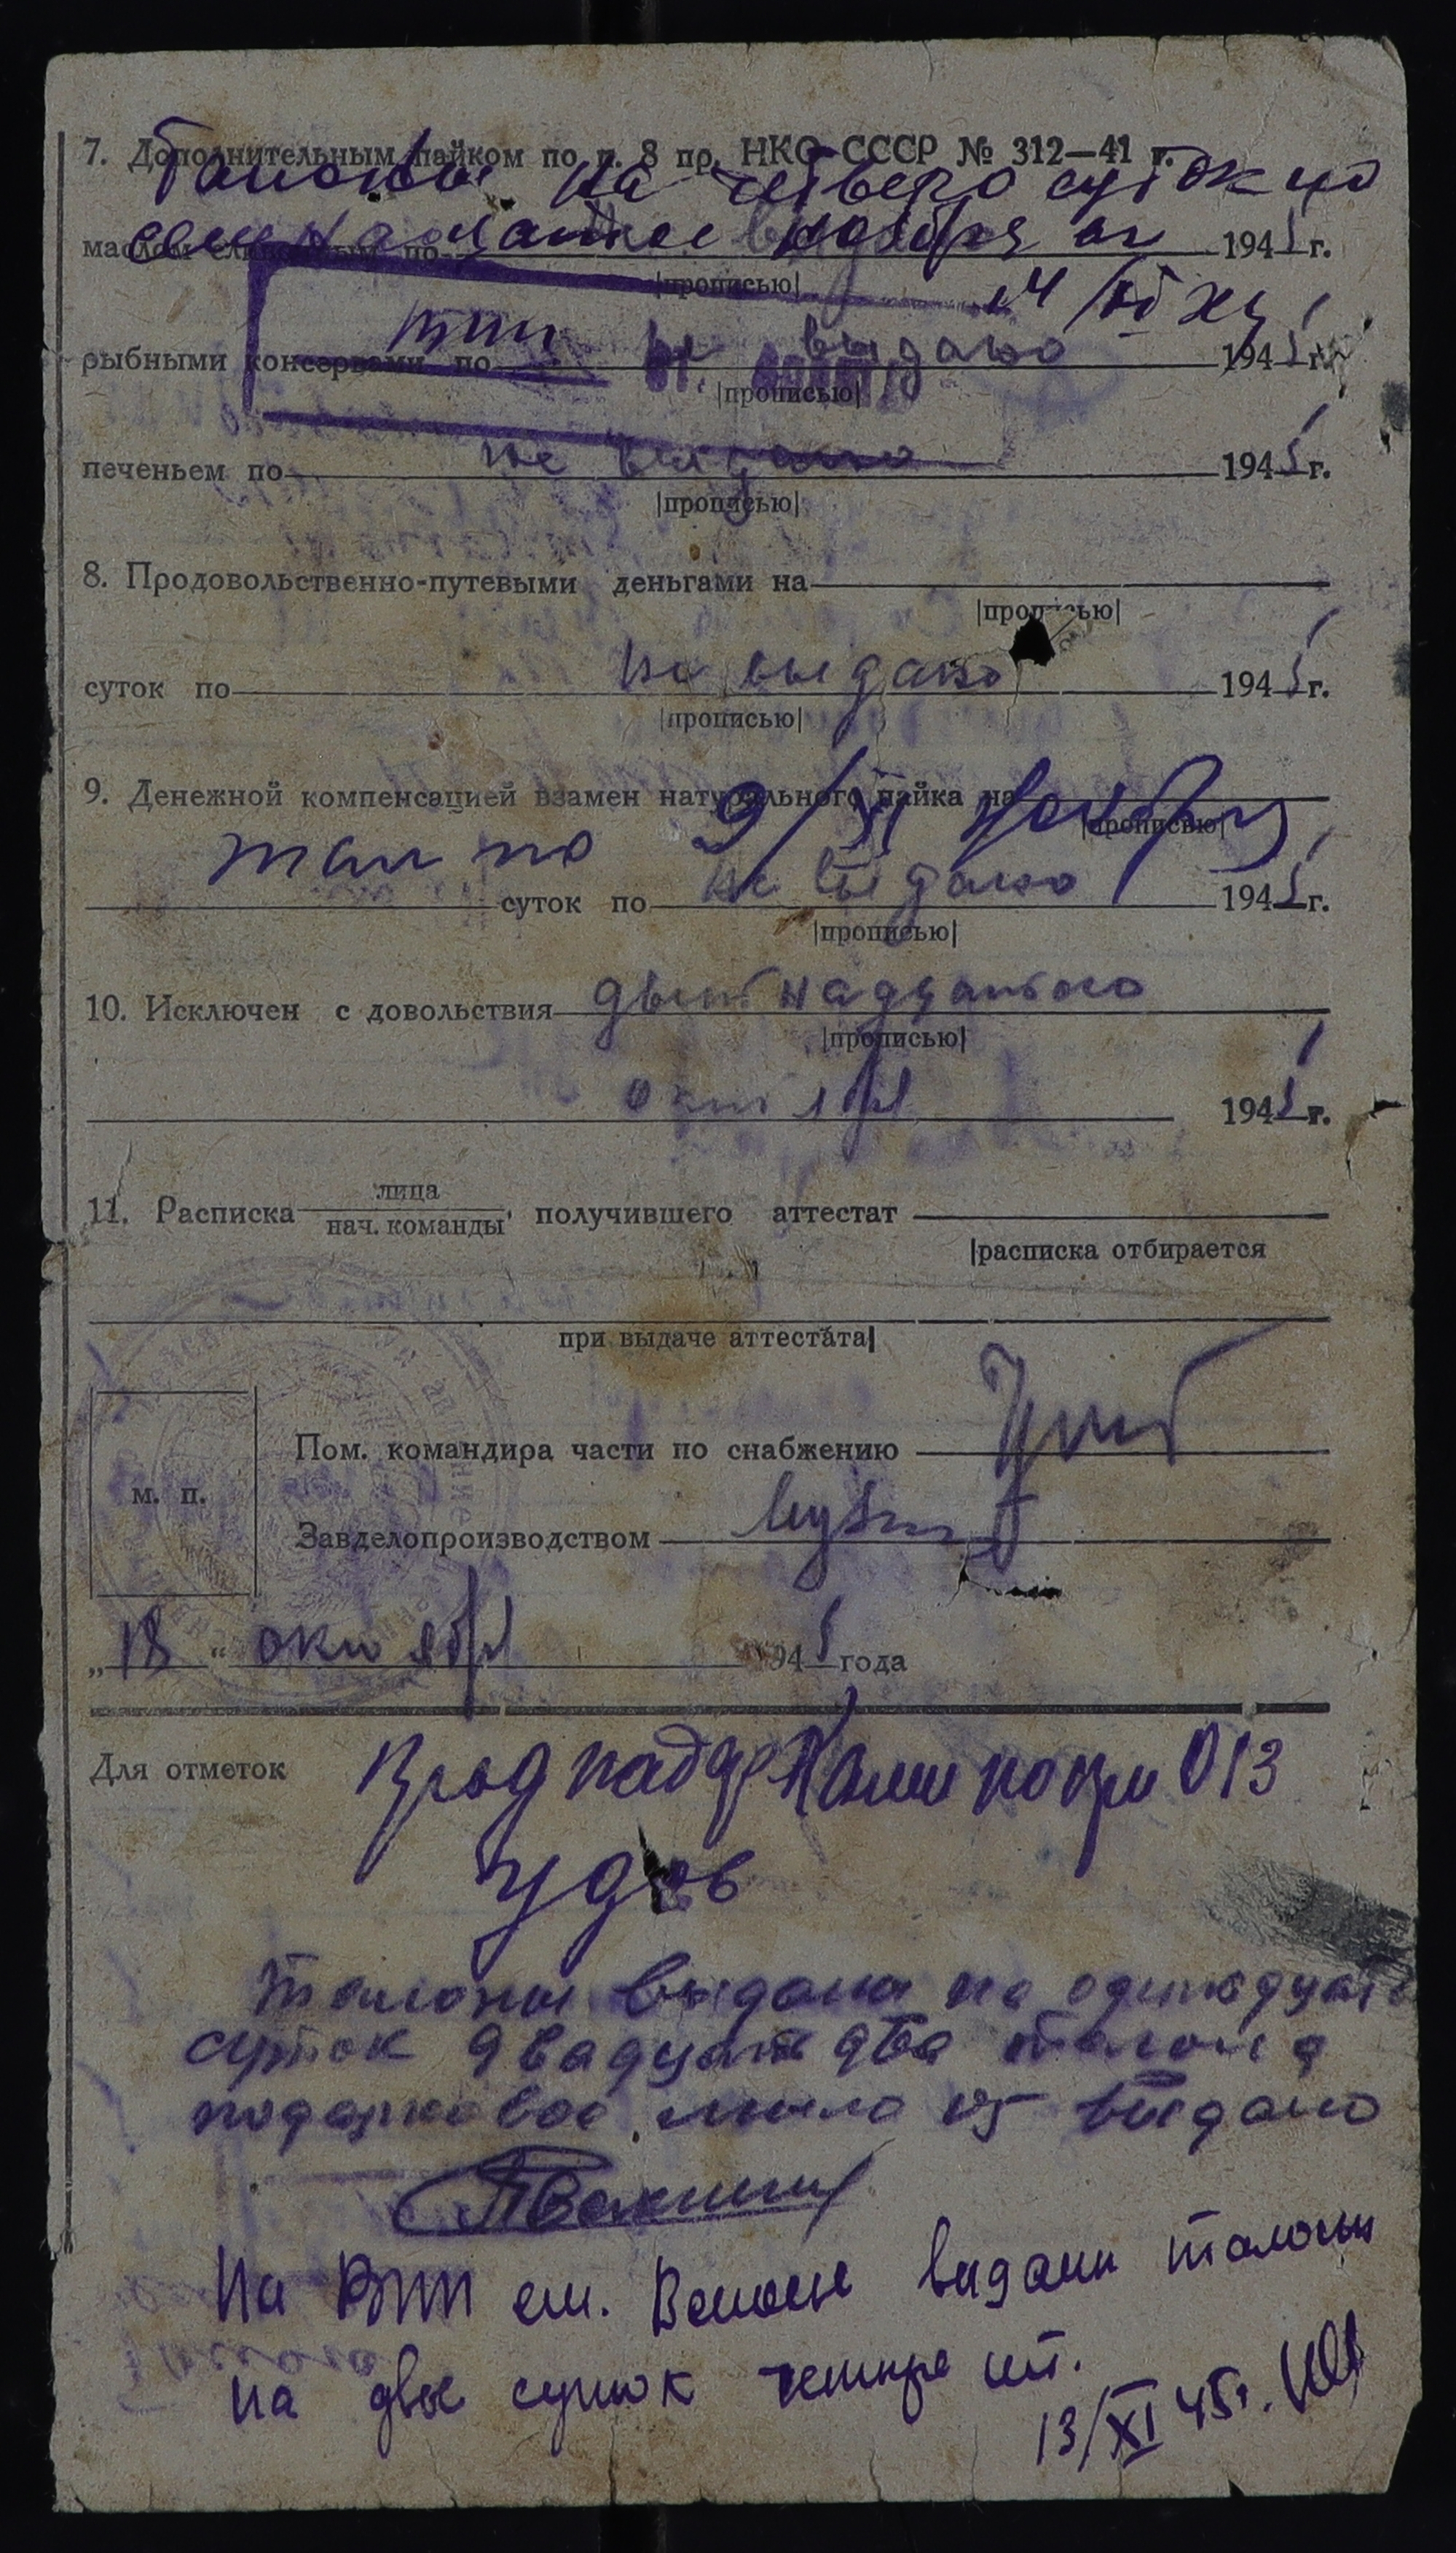 7. Дополнительным пайком по п. 8 пр. НКО СССР № 312—41 г.
Талоны на четверо суток по
семнадцатое ноября
маслом сливочным по 1945 г.
|прописью|
14/XI
рыбными консервами по не выдано 1945 г.
|прописью|
печеньем по не выдано 1945 г.
|прописью|
8. Продовольственно-путевыми деньгами на
|прописью|
суток по не выдано 1945 г.
|прописью|
9. Денежной компенсацией взамен натурального пайка на
|прописью|
тал по 9/XI ноября
суток по не выдано 1945 г.
|прописью|
10. Исключен с довольствия
|прописью|
октября 1945 г.
11. Расписка лица
нач. команды, получившего аттестат
|расписка отбирается
при выдаче аттестата|
Пом. командира части по снабжению
м. п.
Завделопроизводством
„18“ октября 1945 года
Для отметок
013
Талоны выдана на одинадцать
суток двадцать два талона
подарковое мыло не выдано
На ВПП ст. выдани талоны
на двое суток четыре шт.
13/XI 45г.